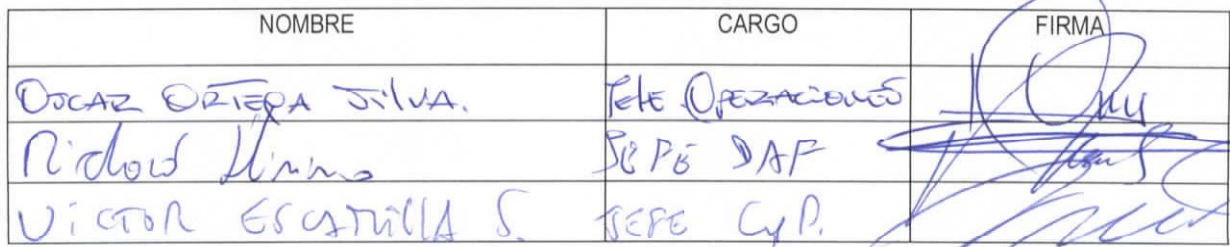 NOMBRE CARGO FIRMA
OSCAR ORTEGA SILVA. Jefe OPERACIONES
Richard JEFE DAF
VICTOR ESCAMILLA S. JEFE CyP.